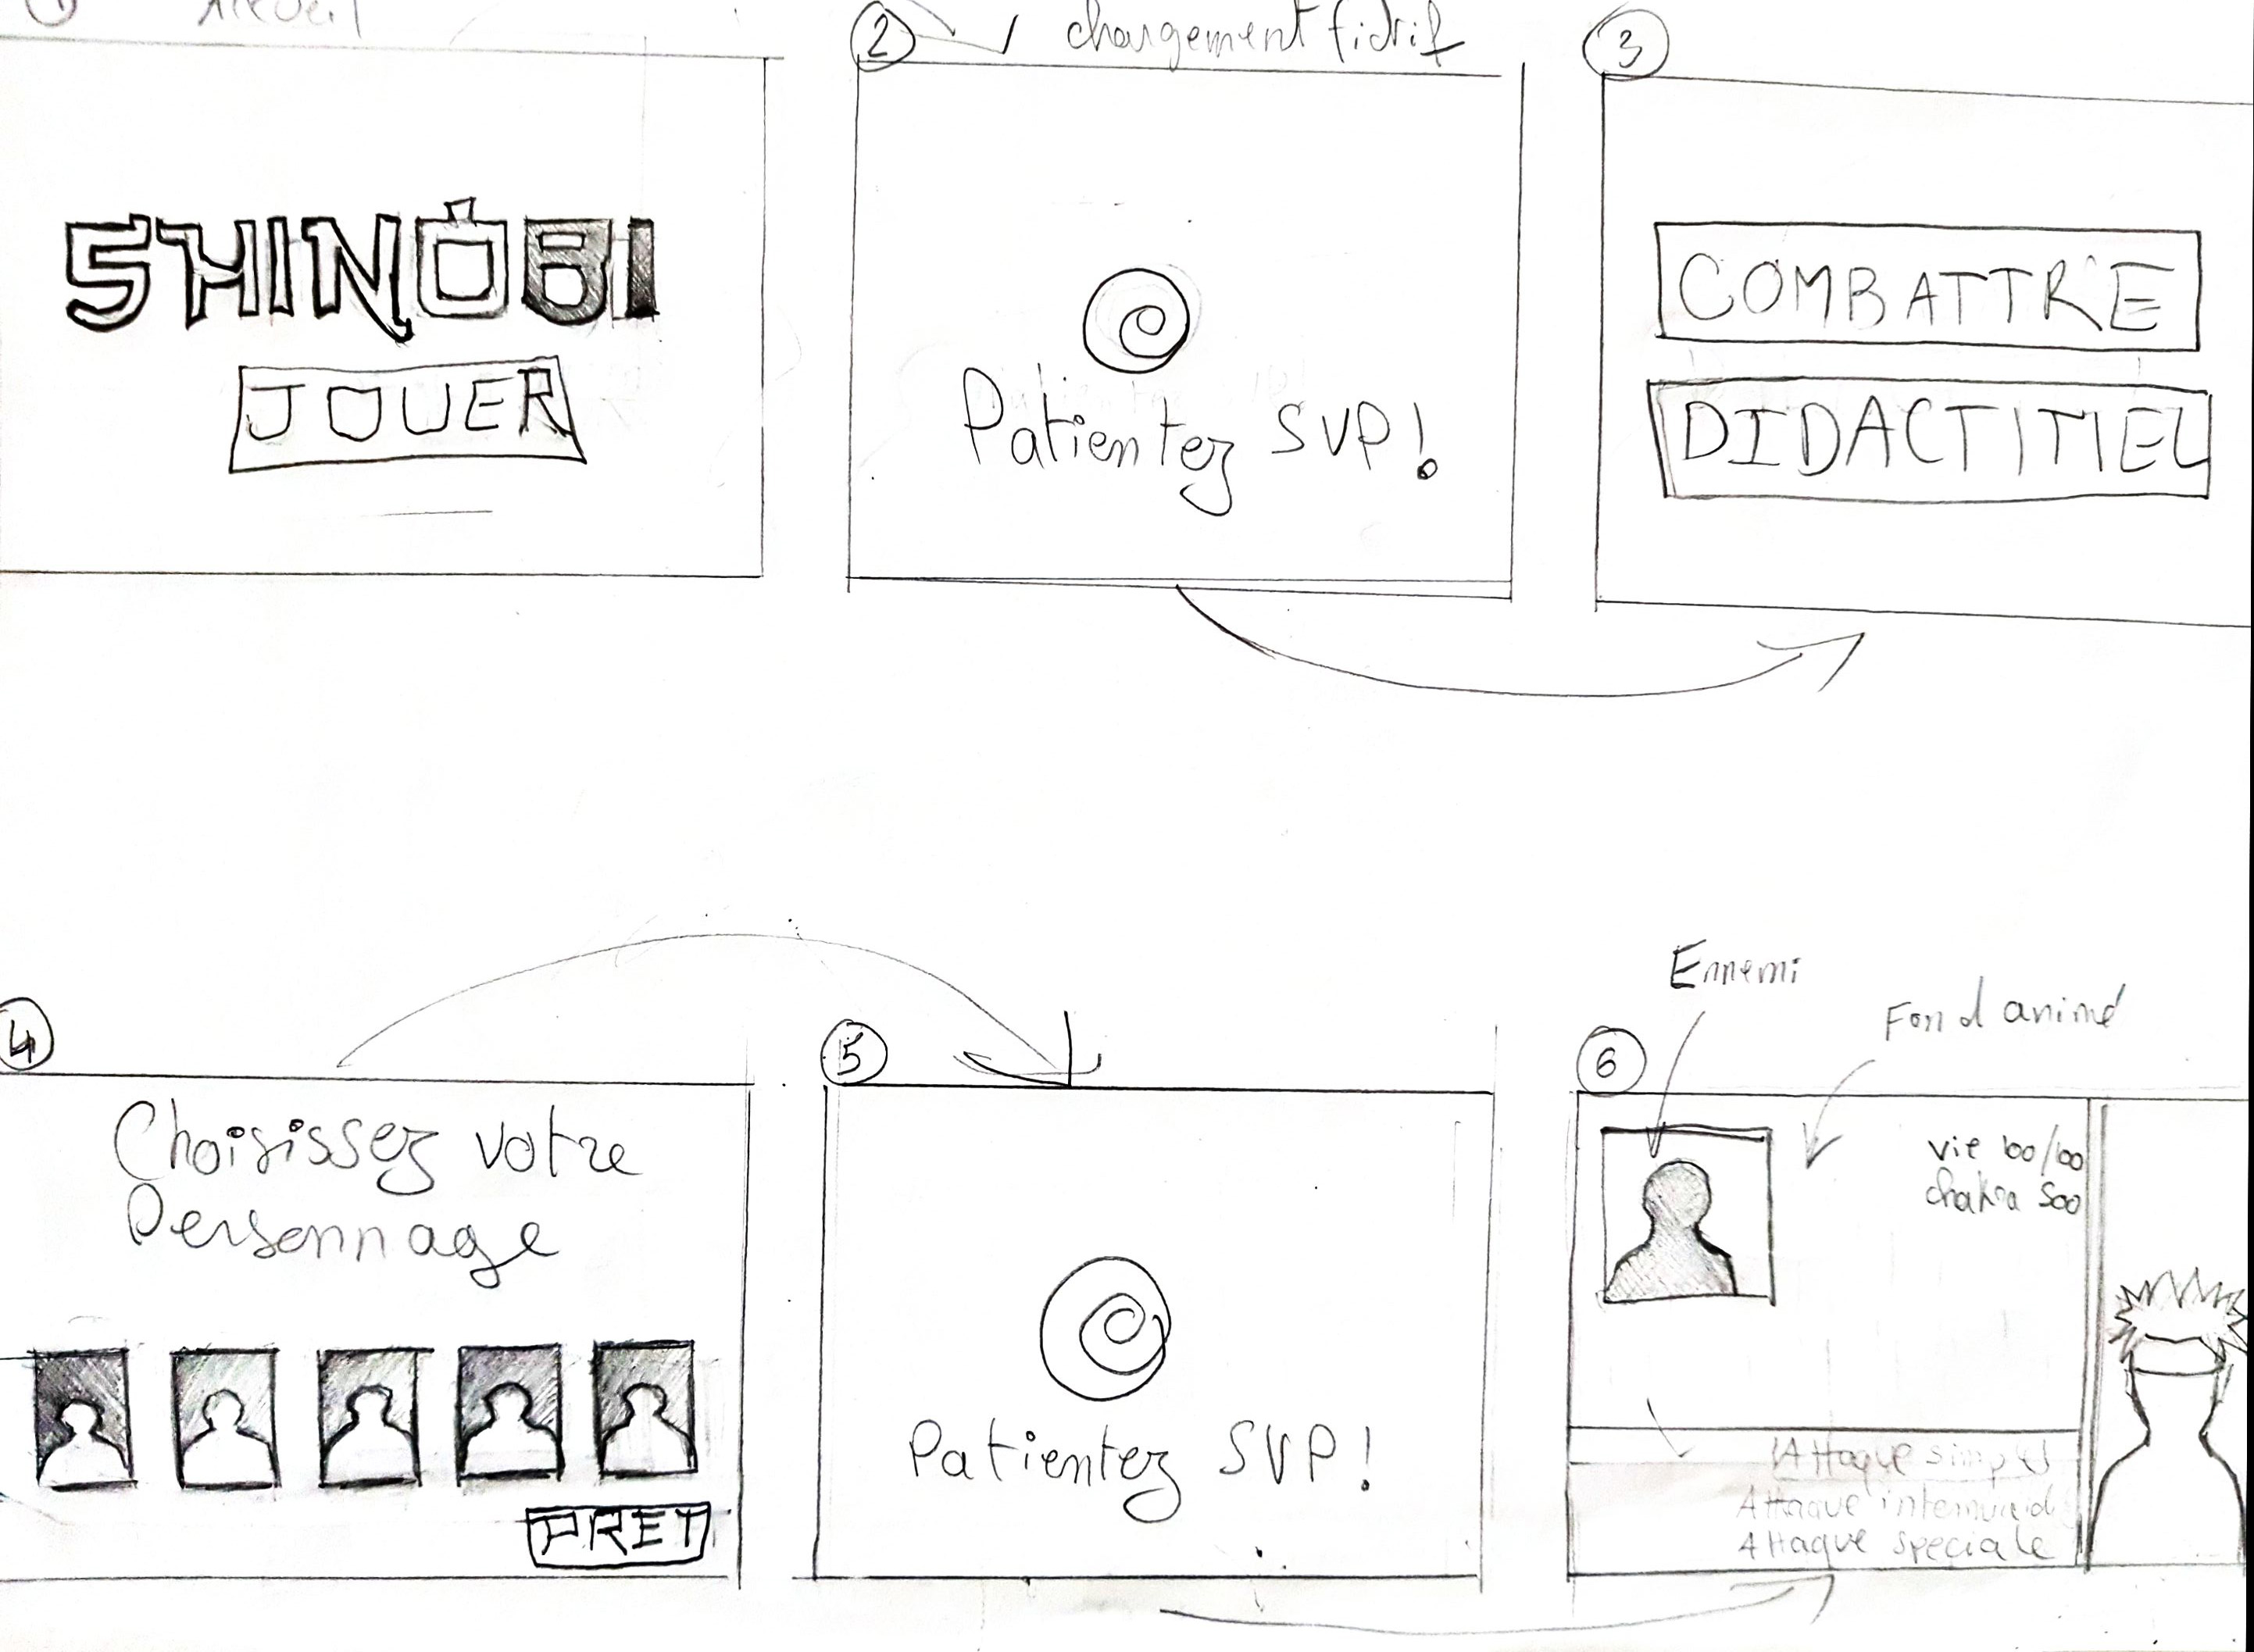 1 Accueil
SHINOBI
JOUER
2 chargement fictif
Patientez SVP!
3
COMBATTRE
DIDACTITIEL
4
Choisissez votre
Personnage
PRET
5
Patientez SVP!
Ennemi
Fond animé
6
vie 100/100
chakra 500
Attaque simple
Attaque
Attaque speciale